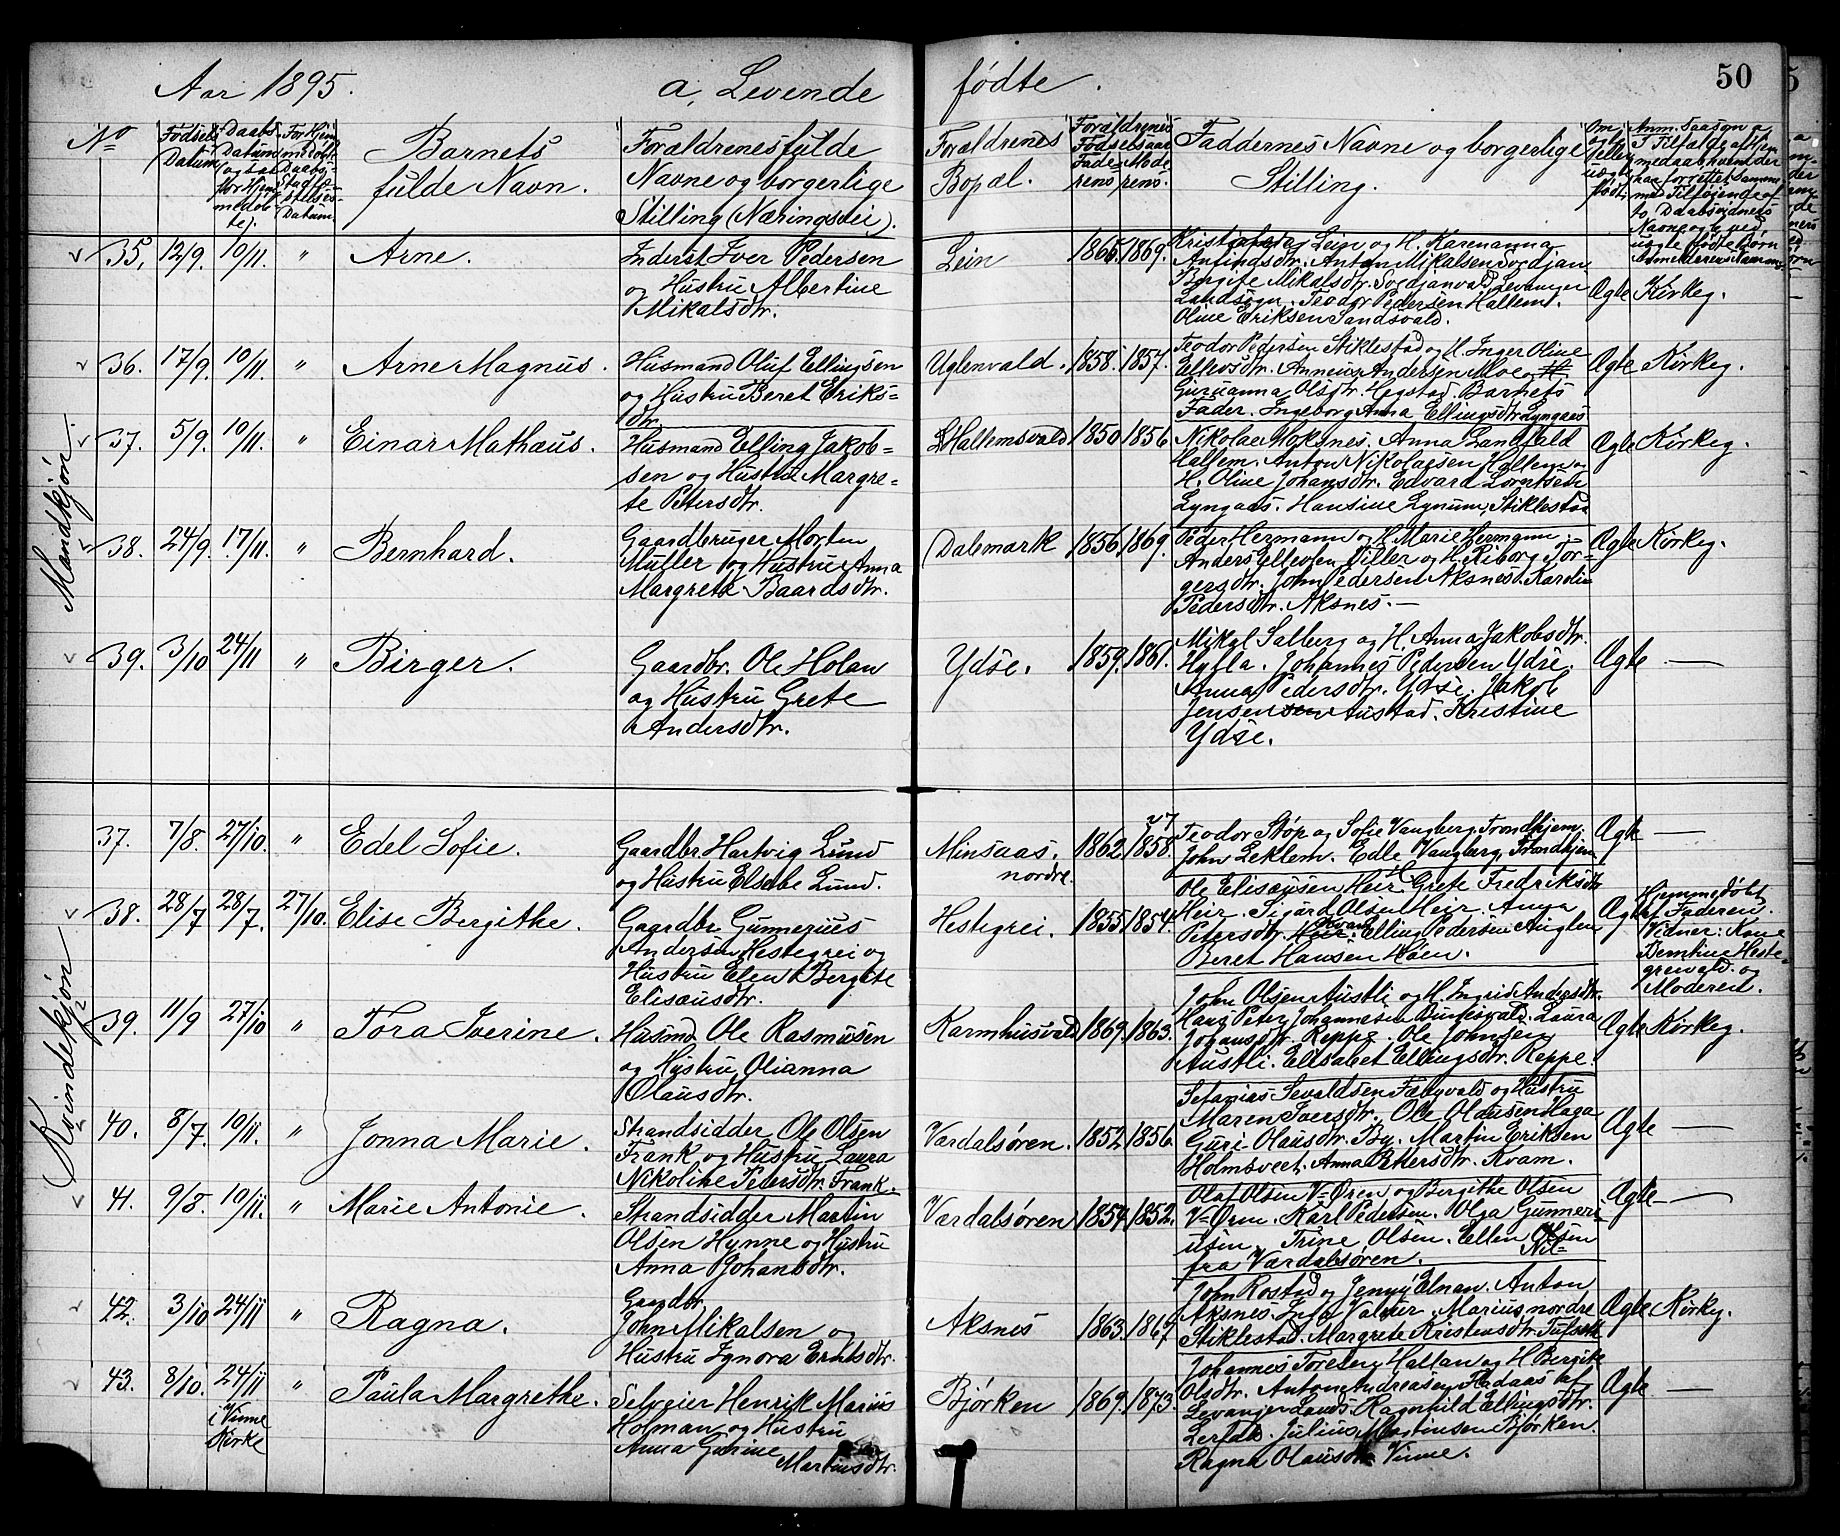 Aar 1895. a, Levende fødte. 50
No
Fødsels Datum
Daabs Datum
Barnets fulde Navn.
Forældrenes fulde
Navne og borgerlige
Stilling (Næringsvei).
Forældrenes
Bopæl.
Forældrenes
Fødselsaar
Fade- Mode
rens. rens.
Faddernes Navne og borgerlige
Stilling.
Mandkjøn.
35. 12/9. 10/11. " Arne.
Inderst Iver Pedersen
og Hustru Albertine
Mikalsdtr.
Lein 1865. 1869.
Anton Mikalsen
Landsogn. Teodor Pedersen Hallem.
Oline Eriksen Sandsvald.
Ægte Kirkeg.
36. 17/9. 10/11. " Arne Magnus.
Husmand Oluf Ellingsen
og Hustru Beret Eriks=
dtr.
Uglenvald. 1858. 1857.
Teodor Pedersen Stiklestad og H. Inger Oline
Ellevsdtr. Anneus Andersen Moe
Guruanna Olsdtr. Hegstad. Barnets
Fader. Ingeborg Anna Ellingsdtr. Lyngaas
Ægte Kirkeg.
37. 5/9. 10/11. " Einar Mathæus.
Husmand Elling Jakob=
sen og Hustru Margre=
te Petersdtr.
Hallemsvald 1850 1856
Nikolai Hoksnes. Anna Landfald
Hallem. Anton Nikolaisen Hallem og
H. Oline Johansdtr. Edvard Lorentsen
Lyngaas. Hansine Lynum, Stiklestad
Ægte Kirkeg.
38. 24/9. 17/11. " Bernhard.
Gaardbruger Morten
Müller og Hustru Anna
Margrete Baardsdtr.
Dalemark 1856. 1869.
Peder Hermann og H. Marie Hermann.
Anders Ellevsen Tiller og H. Riborg Tor=
gersdtr. John Pedersen Aksnes. Karolin
Pedersdtr. Aksnes. —
Ægte Kirkeg.
39. 3/10 24/11 " Birger.
Gaardbr. Ole Holan
og Hustru Grete
Andersdtr.
Ydse. 1859. 1861.
Mikal Salberg og H. Anna Jakobsdtr.
Hylla. Johannes Pedersen Ydse.
Anna Pedersdtr. Ydse. Jakob
Jensen Austad. Kristine
Ydse.
Ægte —
Kvindekjøn
37. 7/8. 27/10. " Edel Sofie.
Gaardbr. Hartvig Lund
og Hustru Elsebe Lund.
Minsaas.
nordre.
1862 1858.
Teodor Støp og Sofie Vangberg, Trondhjem.
John Leklem. Edle Vangberg, Trondhjem
Ægte —
38. 28/7 28/7. 27/10. Elise Bergithe.
Gaardbr. Gunnerius
Andersen Hestegrei og
Hustru Elen Bergite
Elisæusdtr.
Hestegrei. 1855 1854.
Ole Elisæusen Heir. Grete Fredriksdtr.
Heir. Sigurd Olsen Heir. Anna
Petersdtr. Kvam. Elling Pedersen Auglen
Beret Hansen Høen.
Ægte
Hjemmedøbt
af Faderen.
Vidner: Kone
Berntine Heste=
greivald. og
Moderen.
39. 11/9 27/10 " Tora Iverine.
Husmd. Ole Rasmusen
og Hustru Olianna
Olausdtr.
Karmhusvald 1869. 1863.
John Olsen Austli og H. Ingrid Andersdtr.
Hans Peter Johannesen
Johansdtr. Reppe. Ole Johnsen
Austli. Elisabet Ellingsdtr. Reppe.
Ægte Kirkeg.
40. 8/7. 10/11. " Jonna Marie.
Strandsidder Ole Olsen
Frank og Hustru Laura
Nikoline Petersdtr. Frank.
Værdalsøren. 1852. 1856.
Sefanias Sevaldsen Fæbyvald og Hustru
Maren Iversdtr. Ole Olausen Haga
Guri Olausdtr. By. Martin Eriksen
Holmsveet. Anna Pettersdtr. Kvam.
Ægte —
41. 9/8. 10/11. " Marie Antonie.
Strandsidder Martin
Olsen Hynne og Hustru
Anna Johansdtr.
Værdalsøren 1854. 1852.
Olaf Olsen V=Øren og Bergithe Olsen
V=Øren. Karl Pedersen. Olga Gunneri
usen. Trine Olsen. Ellen Olsen
fra Værdalsøren.
Ægte —
42. 3/10 24/11 " Ragna.
Gaardbr.
John Mikalsen og
Hustru Ignora Erntsdtr.
Aksnes 1863. 1867
John Rostad og Jenny Elnan. Anton
Aksnes. Marius nordre
Stiklestad. Margrete Kristensdtr.
Ægte Kirkeg.
43. 8/10. 24/11 " Paula Margrethe.
i Vinne
Kirke
Selveier Henrik Marius
Holman og Hustru
Anna Gurine
Martinsdtr.
Bjørken 1869. 1873.
Johannes Toreberg Hallan og H. Bergite
Olsdtr. Anton Andreasen Fladaas af
Levanger Lands. Ragnhild Ellingsdtr.
Julius Martinsen Bjørken.
Ragna Olausdtr. Vinne.
Ægte —